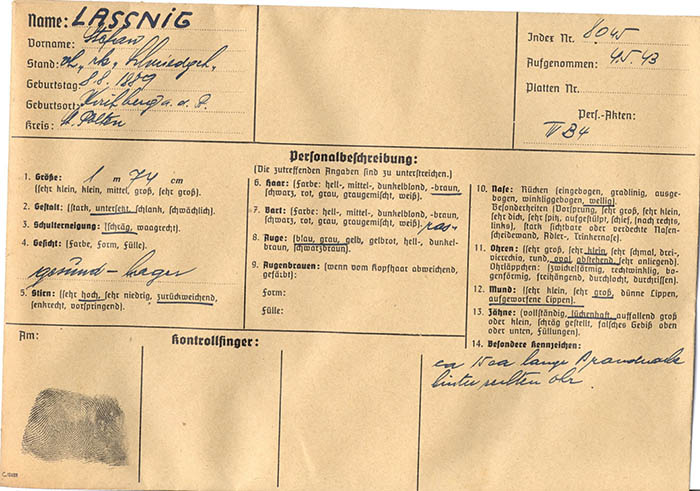 Name: LASSNIG
Vorname: Stefan
Stand: vh., rk.,
Geburtstag: 8.8. 1889
Geburtsort: Kirchberg a. d. P.
Kreis: St. Pölten
Index Nr. 8045
Aufgenommen: 4.5.43
Platten Nr.
Pers.-Akten:
IV B4
Personalbeschreibung:
(Die zutreffenden Angaben sind zu unterstreichen.)
1. Größe: 1 m 74 cm
(sehr klein, klein, mittel, groß, sehr groß).
2. Gestalt: (stark, untersetzt, schlank, schwächlich).
3. Schulterneigung: (schräg, waagrecht).
4. Gesicht: (Farbe, Form, Fülle).
gesund – hager
5. Stirn: (sehr hoch, sehr niedrig, zurückweichend,
senkrecht, vorspringend).
6. Haar: (Farbe: hell-, mittel-, dunkelblond, -braun,
schwarz, rot, grau, graugemischt, weiß).
7. Bart: (Farbe: hell-, mittel-, dunkelblond, -braun,
schwarz, rot, grau, graugemischt, weiß) ras-
8. Auge: (blau, grau, gelb, gelbrot, hell-, dunkel-
braun, schwarzbraun).
9. Augenbrauen: (wenn vom Kopfhaar abweichend,
gefärbt):
Form:
Fülle:
10. Nase: Rücken (eingebogen, gradlinig, ausge-
bogen, winkliggebogen, wellig).
Besonderheiten (Vorsprung, sehr groß, sehr klein,
sehr dick, sehr spitz, aufgestülpt, schief, (nach rechts,
links), stark sichtbare oder verdeckte Nasen-
scheidewand, Adler-, Trinkernase).
11. Ohren: (sehr groß, sehr klein, sehr schmal, drei-
viereckig, rund, oval, abstehend, sehr anliegend).
Ohrläppchen: (zwickelförmig, rechtwinklig, bo-
genförmig, freihängend, durchlocht, durchrissen).
12. Mund: (sehr klein, sehr groß, dünne Lippen,
aufgeworfene Lippen).
13. Zähne: (vollständig, lückenhaft, auffallend groß
oder klein, schräg gestellt, falsches Gebiß oben
oder unten, Füllungen).
14. Besondere Kennzeichen:
ca lange
hinter rechten ohr.
Am:
Kontrollfinger: